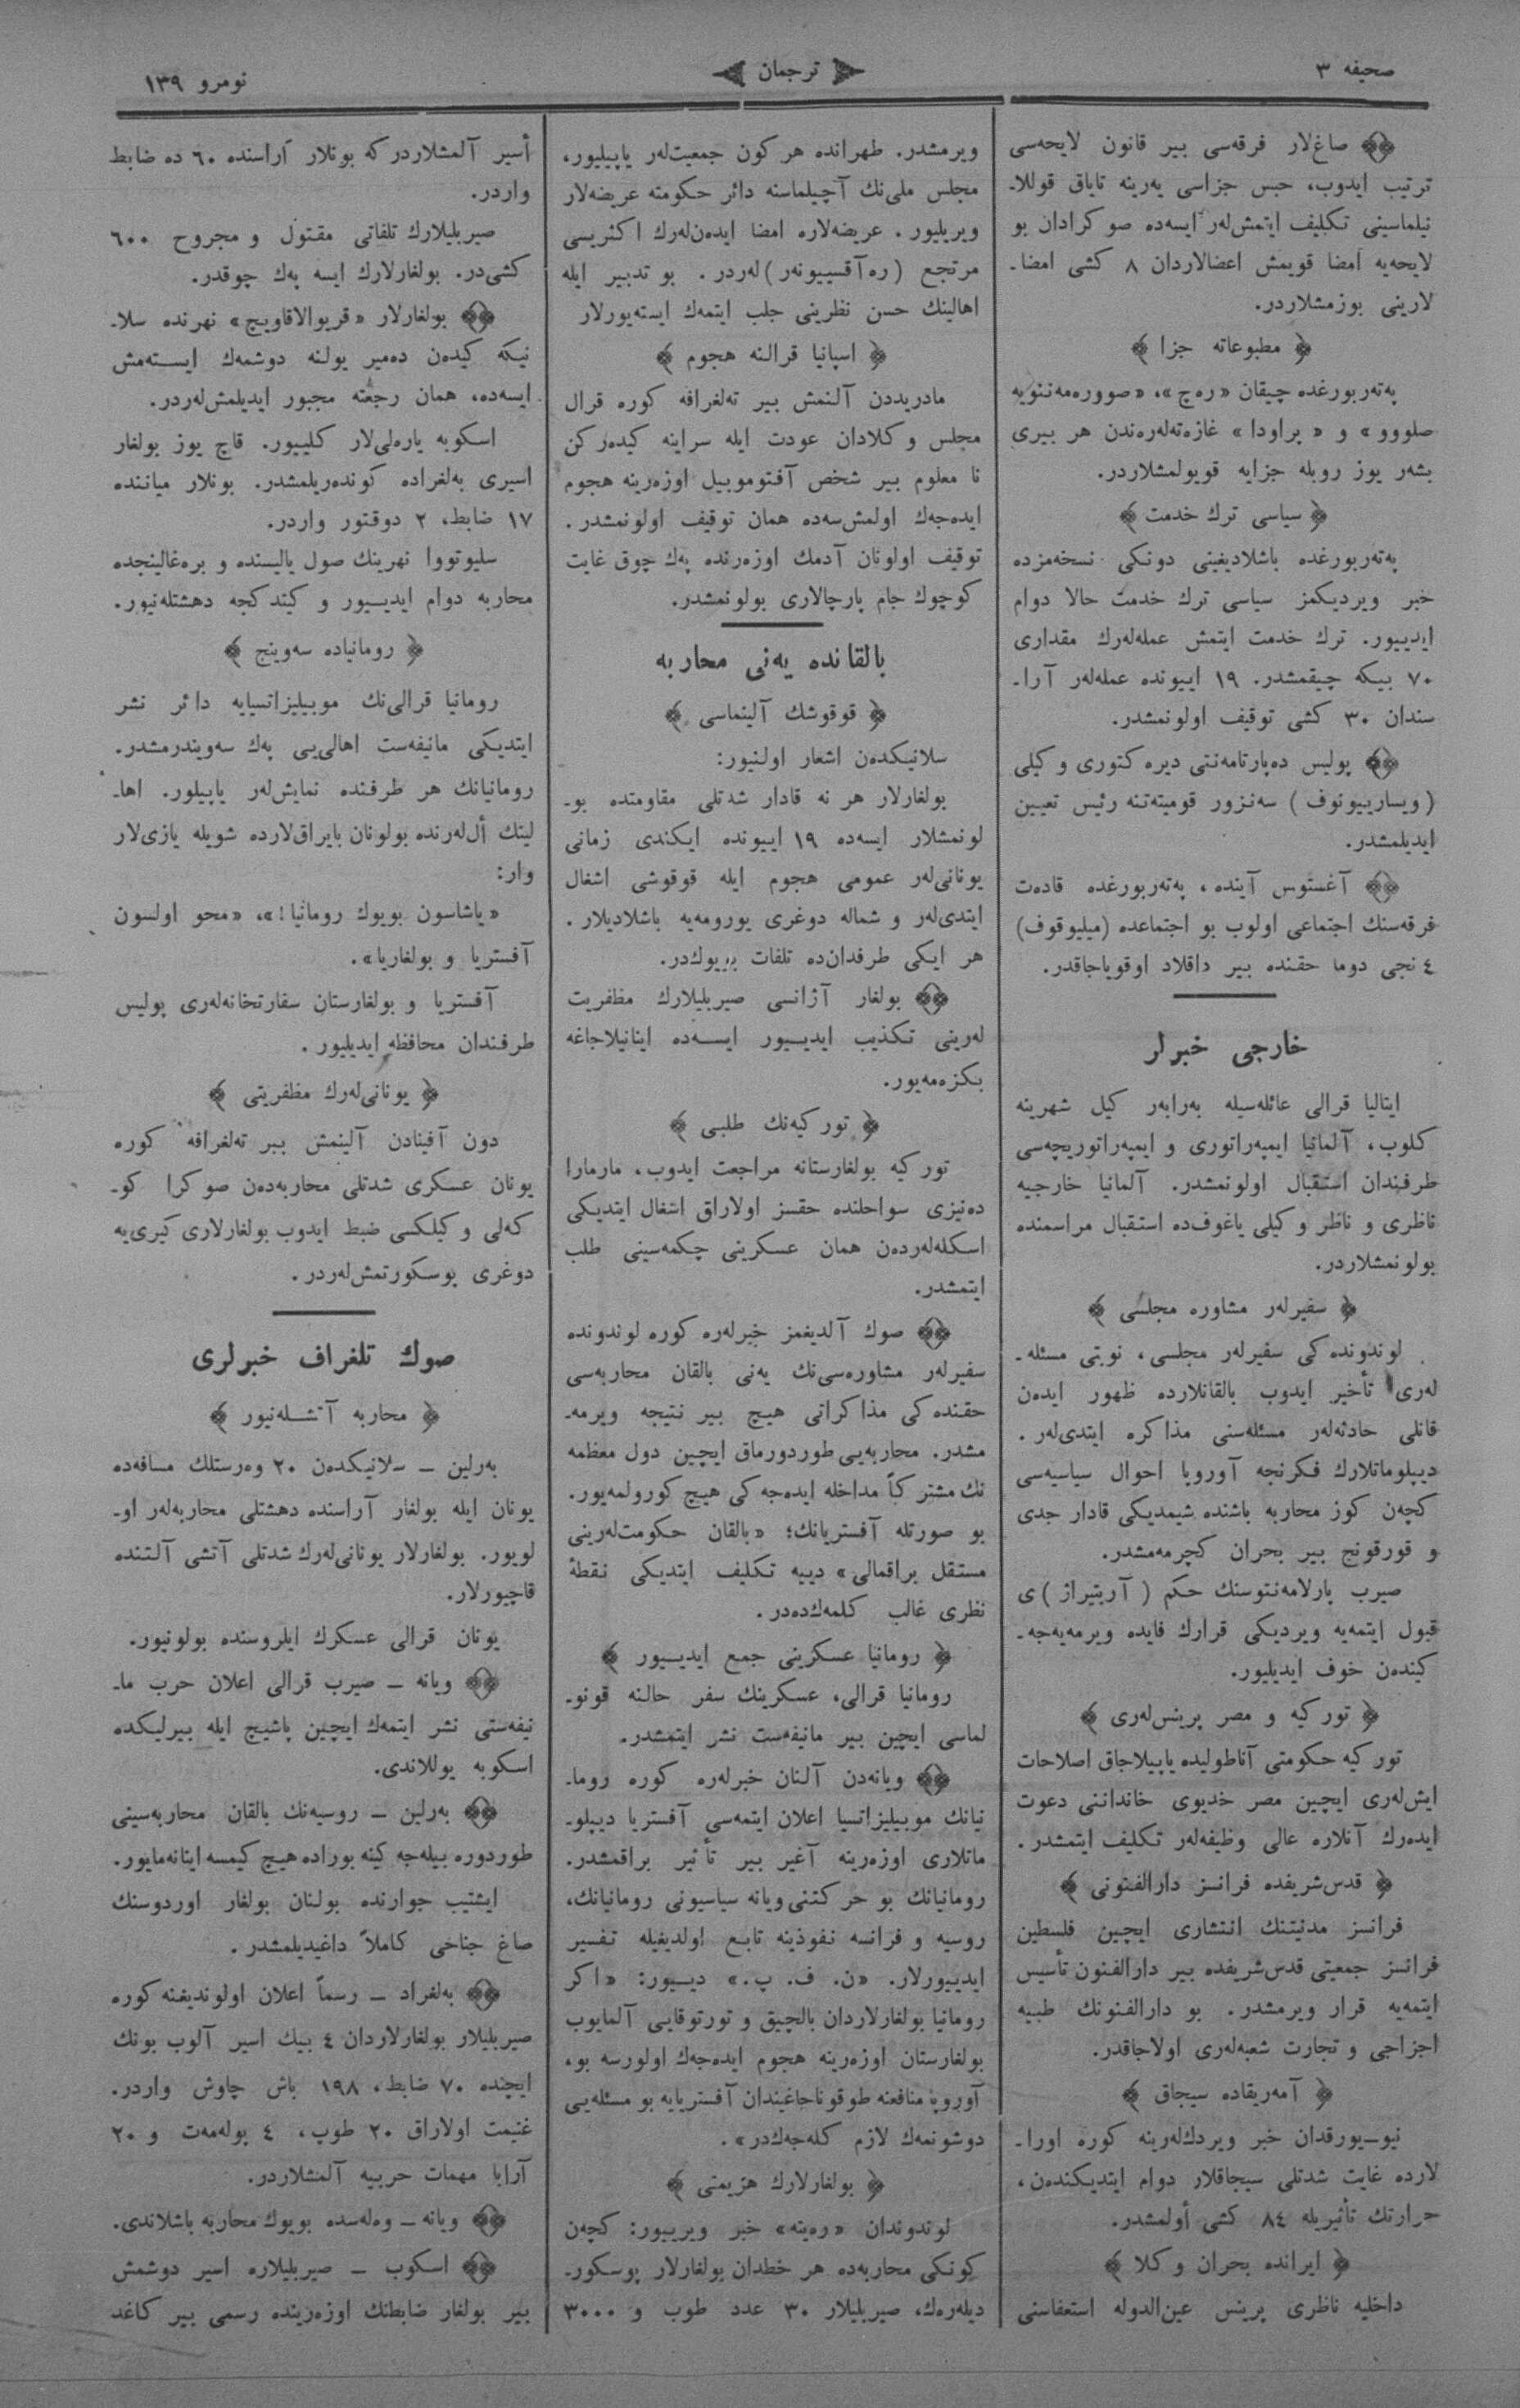 صحیفه ۳
ترجمان
نومرو ۱۳۹
صاغ‌لار فرقه‌سی بیر قانون لایحه‌سی
ترتیب ایدوب، حبس جزاسی یه‌رینه تایاق قوللا-
نیلماسینی تکلیف ایتمش‌لەر ایسه‌ده صوکرادان بو
لایحه‌یه امضا قویمش اعضالاردان ۸ کشی امضا-
لارینی بوزمشلاردر.
﴿ مطبوعاته جزا ﴾
په‌ته‌ربورغده چیقان «ره‌چ»، «صووره‌مه‌ننویه
صلووو» و «پراودا» غازه‌ته‌له‌ره‌ندن هر بیری
بشه‌ر یوز روبله جزایه قویولمشلاردر.
﴿ سیاسی ترك خدمت ﴾
په‌ته‌ربورغده باشلادیغینی دونکی نسخه‌مزده
خبر ویردیکمز سیاسی ترك خدمت حالا دوام
ایدییور. ترك خدمت ایتمش عمله‌له‌رك مقداری
۷۰ بیکه چیقمشدر. ۱۹ اییونده عمله‌لەر آرا-
سندان ۳۰ کشی توقیف اولونمشدر.
پولیس ده‌پارتامه‌نتی دیره‌کتوری وکیلی
(ویسارییونوف) سه‌نزور قومیته‌تنه رئیس تعیین
ایدیلمشدر.
آغستوس آینده، په‌ته‌ربورغده قاده‌ت
فرقه‌سنك اجتماعی اولوب بو اجتماعده (میلیوقوف)
٤ نجی دوما حقنده بیر داقلاد اوقویاجاقدر.
خارجی خبرلر
ایتالیا قرالی عائله‌سیله به‌رابه‌ر کیل شهرینه
کلوب، آلمانیا ایمپه‌راتوری و ایمپه‌راتوریچه‌سی
طرفندان استقبال اولونمشدر. آلمانیا خارجیه
ناظری و ناظر وکیلی یاغوف‌ده استقبال مراسمنده
بولونمشلاردر.
﴿ سفیرلەر مشاوره مجلسی ﴾
لوندونده‌کی سفیرلەر مجلسی، نوبتی مسئله-
له‌ری تأخیر ایدوب بالقانلارده ظهور ایدەن
قانلی حادثه‌لەر مسئله‌سنی مذاکره ایتدی‌لەر.
دیپلوماتلارك فکرنجه آوروپا احوال سیاسیه‌سی
کچەن کوز محاربه باشنده شیمدیکی قادار جدی
و قورقونج بیر بحران کچرمه‌مشدر.
صیرب پارلامه‌نتوسنك حکم (آربتیراژ)ی
قبول ایتمه‌یه ویردیکی قرارك فایده ویرمه‌یه‌جه-
کیندەن خوف ایدیلیور.
﴿ تورکیه و مصر پرینس‌له‌ری ﴾
تورکیه حکومتی آناطولیده یاپیلاجاق اصلاحات
ایش‌له‌ری ایچین مصر خدیوی خانداننی دعوت
ایده‌رك آنلاره عالی وظیفه‌لەر تکلیف ایتمشدر.
﴿ قدس‌شریفده فرانسز دارالفنونی ﴾
فرانسز مدنیتنك انتشاری ایچین فلسطین
فرانسز جمعیتی قدس‌شریفده بیر دارالفنون تأسیس
ایتمه‌یه قرار ویرمشدر. بو دارالفنونك طبیه
اجزاجی و تجارت شعبه‌له‌ری اولاجاقدر.
﴿ آمه‌ریقاده سیجاق ﴾
نیو-یورقدان خبر ویردك‌له‌رینه کوره اورا-
لارده غایت شدتلی سیجاقلار دوام ایتدیکندەن،
حرارتك تأثیریله ۸٤ کشی أولمشدر.
﴿ ایرانده بحران وکلا ﴾
داخلیه ناظری پرینس عین‌الدوله استعفاسنی
ویرمشدر. طهرانده هر کون جمعیت‌لەر یاپیلیور،
مجلس ملی‌نك آچیلماسنه دائر حکومته عریضه‌لار
ویریلیور. عریضه‌لاره امضا ایدەن‌له‌رك اکثریسی
مرتجع (ره‌آقسییونەر)لەردر. بو تدبیر ایله
اهالینك حسن نظرینی جلب ایتمەك ایسته‌یورلار
﴿ اسپانیا قرالنه هجوم ﴾
مادریددن آلنمش بیر ته‌لغرافه کوره قرال
مجلس وکلادان عودت ایله سراینه کیده‌رکن
نا معلوم بیر شخص آفتوموبیل اوزه‌رینه هجوم
ایده‌جەك اولمش‌سه‌ده همان توقیف اولونمشدر.
توقیف اولونان آدمك اوزه‌رنده پەك چوق غایت
کوچوك جام پارچالاری بولونمشدر.
بالقانده یه‌نی محاربه
﴿ قوقوشك آلینماسی ﴾
سلانیکدەن اشعار اولنیور:
بولغارلار هر نه قادار شدتلی مقاومتده بو-
لونمشلار ایسه‌ده ۱۹ اییونده ایکندی زمانی
یونانی‌لەر عمومی هجوم ایله قوقوشی اشغال
ایتدی‌لەر و شماله دوغری یورومه‌یه باشلادیلار.
هر ایکی طرفدان‌ده تلفات بیوك‌در.
بولغار آژانسی صیربلیلارك مظفریت
له‌رینی تکذیب ایدیـیور ایسه‌ده اینانیلاجاغه
بکزه‌مه‌یور.
﴿ تورکیه‌نك طلبی ﴾
تورکیه بولغارستانه مراجعت ایدوب، مارمارا
ده‌نیزی سواحلنده حقسز اولاراق اشغال ایتدیکی
اسکله‌له‌ردەن همان عسکرینی چکمه‌سینی طلب
ایتمشدر.
صوك آلدیغمز خبرله‌ره کوره لوندونده
سفیرلەر مشاوره‌سی‌نك یه‌نی بالقان محاربه‌سی
حقنده‌کی مذاکراتی هیچ بیر نتیجه ویرمه-
مشدر. محاربه‌یی طوردورماق ایچین دول معظمه
نك مشترکاً مداخله ایده‌جه‌کی هیچ کورولمه‌یور.
بو صورتله آفستریانك؛ «بالقان حکومت‌له‌رینی
مستقل براقمالی» دییه تکلیف ایتدیکی نقطهٔ
نظری غالب کلمه‌کده‌در.
﴿ رومانیا عسکرینی جمع ایدیـیور ﴾
رومانیا قرالی، عسکرینك سفر حالنه قونو-
لماسی ایچین بیر مانیفه‌ست نشر ایتمشدر.
ویانه‌دن آلنان خبرله‌ره کوره روما-
نیانك موبیلیزاتسیا اعلان ایتمه‌سی آفستریا دیپلو-
ماتلاری اوزه‌رینه آغیر بیر تأثیر براقمشدر.
رومانیانك بو حرکتنی ویانه سیاسیونی رومانیانك،
روسیه و فرانسه نفوذینه تابع اولدیغیله تفسیر
ایدییورلار. «ن. ف. پ.» دیـیور: «اکر
رومانیا بولغارلاردان بالچیق و تورتوقایی آلمایوب
بولغارستان اوزه‌رینه هجوم ایده‌جەك اولورسه بو،
آوروپا منافعنه طوقوناجاغیندان آفستریایه بو مسئله‌یی
دوشونمەك لازم کله‌جەك‌در».
﴿ بولغارلارك هزیمتی ﴾
لوندوندان «ره‌یته» خبر ویرییور: کچەن
کونکی محاربه‌ده هر خطدان بولغارلار پوسکور-
دیله‌رەك، صیربلیلار ۳۰ عدد طوب و ۳۰۰۰
أسیر آلمشلاردرکه بونلار آراسنده ٦۰ ده ضابط
واردر.
صیربلیلارك تلفاتی مقتول و مجروح ٦۰۰
کشی‌در. بولغارلارك ایسه پەك چوقدر.
بولغارلار «قریوالاقاویچ» نهرنده سلا-
نیکه کیدەن دەمیر یولنه دوشمەك ایسـته‌مش
ایسه‌ده، همان رجعته مجبور ایدیلمش‌لەردر.
اسکوبه یاره‌لی‌لار کلییور. قاچ یوز بولغار
اسیری به‌لغراده کونده‌ریلمشدر. بونلار میاننده
۱۷ ضابط، ۲ دوقتور واردر.
سلیوتووا نهرینك صول یالیسنده و بره‌غالینجده
محاربه دوام ایدیـیور و کیتدکجه دهشتله‌نیور.
﴿ رومانیاده سه‌وینج ﴾
رومانیا قرالی‌نك موبیلیزاتسیایه دائر نشر
ایتدیکی مانیفه‌ست اهالی‌یی پەك سه‌ویندرمشدر.
رومانیانك هر طرفنده نمایش‌لەر یاپیلور. اها-
لینك أل‌له‌رنده بولونان بایراق‌لارده شویله یازی‌لار
وار:
«یاشاسون بویوك رومانیا!»، «محو اولسون
آفستریا و بولغاریا».
آفستریا و بولغارستان سفارتخانه‌له‌ری پولیس
طرفندان محافظه ایدیلیور.
﴿ یونانی‌له‌رك مظفریتی ﴾
دون آفینادن آلینمش بیر ته‌لغرافه کوره
یونان عسکری شدتلی محاربه‌دەن صوکرا کو-
که‌لی و کیلکسی ضبط ایدوب بولغارلاری کیری‌یه
دوغری پوسکورتمش‌لەردر.
صوك تلغراف خبرلری
﴿ محاربه آتشـله‌نیور ﴾
به‌رلین – سلانیکدەن ۲۰ وه‌رستلك مسافه‌ده
یونان ایله بولغار آراسنده دهشتلی محاربه‌لەر او-
لویور. بولغارلار یونانی‌له‌رك شدتلی آتشی آلتنده
قاچیورلار.
یونان قرالی عسکرك ایلروسنده بولونیور.
ویانه – صیرب قرالی اعلان حرب ما-
نیفه‌ستی نشر ایتمەك ایچین پاشیچ ایله بیرلیکده
اسکوبه یوللاندی.
به‌رلین – روسیه‌نك بالقان محاربه‌سینی
طوردوره بیله‌جه‌کینه بوراده هیچ کیمسه اینانه‌مایور.
ایشتیب جوارنده بولنان بولغار اوردوسنك
صاغ جناحی کاملاً داغیدیلمشدر.
به‌لغراد – رسماً اعلان اولوندیغنه کوره
صیربلیلار بولغارلاردان ٤ بیك اسیر آلوب بونك
ایچنده ۷۰ ضابط، ۱۹۸ باش چاوش واردر.
غنیمت اولاراق ۲۰ طوب، ٤ پوله‌مه‌ت و ۲۰
آرابا مهمات حربیه آلمشلاردر.
ویانه – وه‌له‌سده بویوك محاربه باشلاندی.
اسکوب – صیربلیلاره اسیر دوشمش
بیر بولغار ضابطنك اوزه‌رینده رسمی بیر کاغد